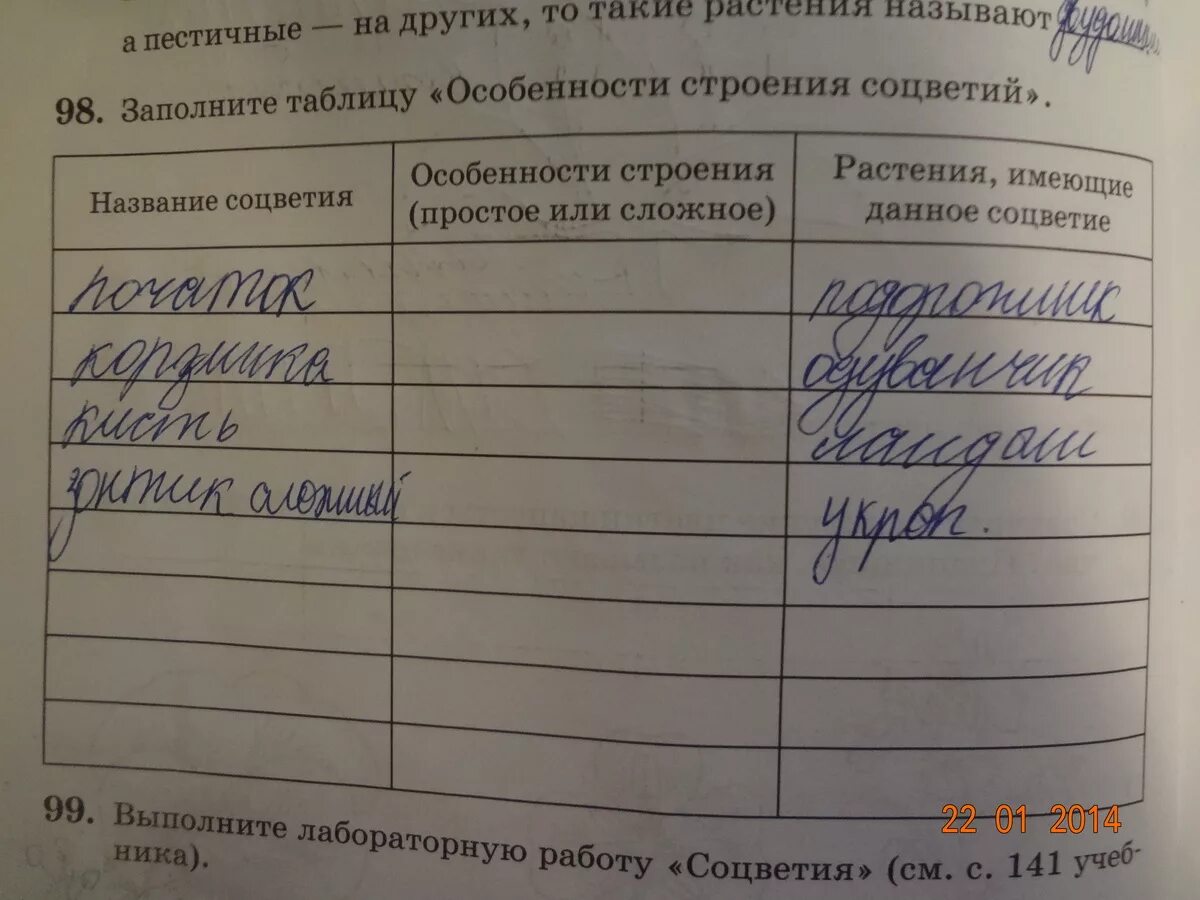 а пестичные — на других, то такие растения называют
98. Заполните таблицу «Особенности строения соцветий».
Название соцветия
Особенности строения
(простое или сложное)
Растения, имеющие
данное соцветие
початок
подорожник
корзинка
одуванчик
кисть
ландыш
зонтик сложный
укроп.
99. Выполните лабораторную работу «Соцветия» (см. с. 141 учеб-
ника).
22 01 2014